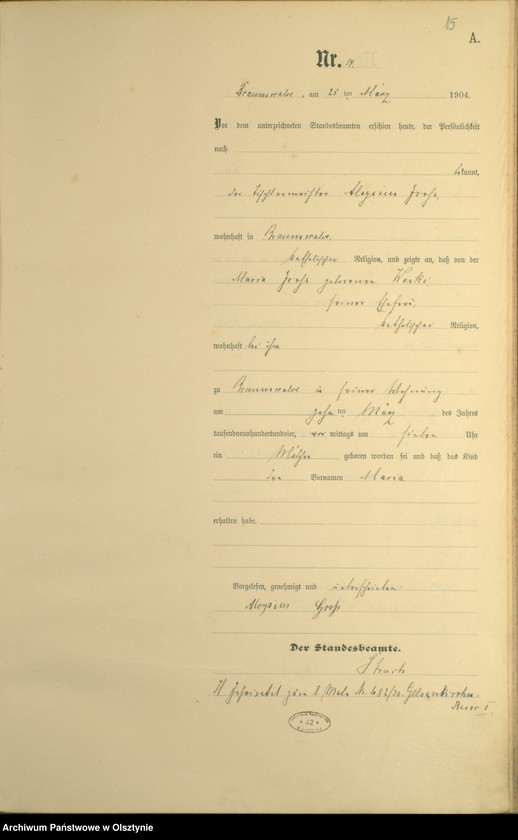 15
A.
Nr. 14.
Braunswalde, am 25 ten März 1904.
Vor dem unterzeichneten Standesbeamten erschien heute, der Persönlichkeit
nach
bekannt,
der Tischlermeister Aloysius Groß,
wohnhaft in Braunswalde,
katholischer Religion, und zeigte an, daß von der
Maria Groß geborenen
seiner Ehefrau,
katholischer Religion,
wohnhaft bei ihm
zu Braunswalde in seiner Wohnung
am zehn ten März des Jahres
tausendneunhundertundvier, vor mittags um sieben Uhr
ein Mädchen geboren worden sei und daß das Kind
den Vornamen Maria
erhalten habe.
Vorgelesen, genehmigt und unterschrieben
Aloysius Groß
Der Standesbeamte.
geheiratet zum 1 Male N. 682/30. Gelsenkirchen-
Buer I.
* 42 *
Archiwum Państwowe w Olsztynie